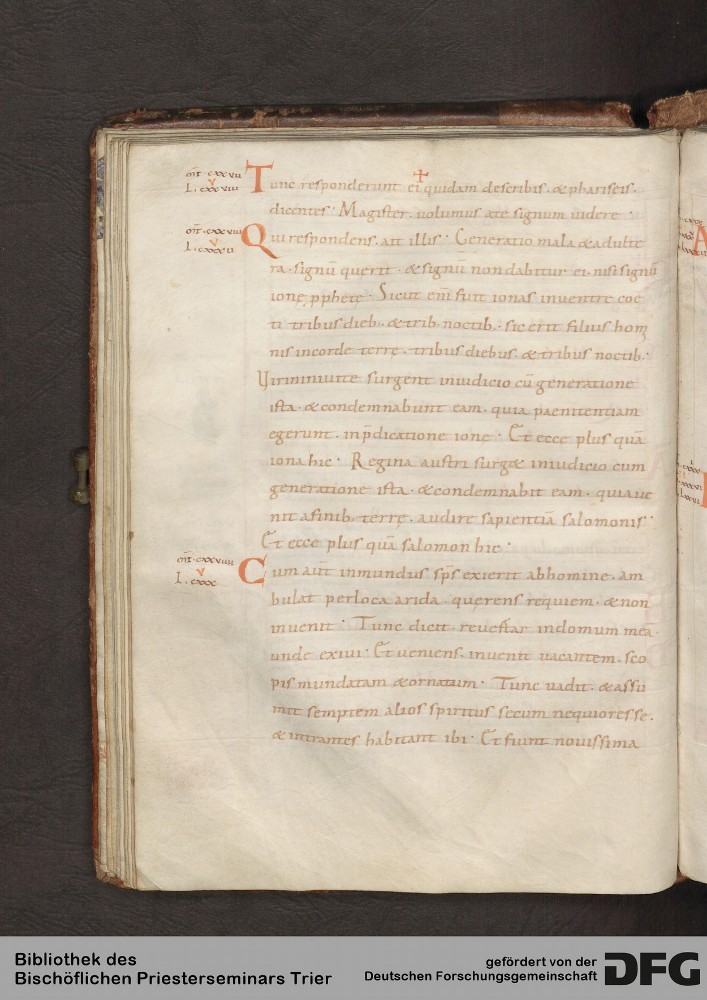 mt cxxvii
L. cxxviii
Tunc responderunt ei quidam describis. & phariseis.
dicentes. Magister. volumus ate signum videre.
mt. cxxviii
v
L. cxxxii
Qui respondens. ait illis. Generatio mala & adulte
ra. signū querit. & signū non dabitur ei. nisi signū
ionę pphete. Sicut em̄ fuit ionas inventre coe
ti tribus dieb. & trib. noctib. sic erit filius homi
nis incorde terrę. tribus diebus & tribus noctib.
Viri ninivite surgent iniudicio cū generatione
ista. & condemnabunt eam. quia paenitentiam
egerunt. inp̄dicatione ione. Et ecce plus quā
iona hic. Regina austri surg& iniudicio cum
generatione ista. & condemnabit eam. quia ue
nit afinib. terrę. audire sapientiā salomonis.
Et ecce plus quā salomon hic.
mt. cxxviiii
v
L. cxxx
Cum aut̄ inmundus sp̄s exierit abhomine. am
bulat perloca arida. querens requiem. & non
invenit. Tunc dicit. revertar indomum meā.
unde exivi. Et veniens. invenit vacantem. sco
pis mundatam & ornatum. Tunc vadit. & assu
mit septem alios spiritus secum nequiores se.
& intrantes habitant ibi. Et fiunt novissima
Bibliothek des
Bischöflichen Priesterseminars Trier
gefördert von der
Deutschen Forschungsgemeinschaft
DFG